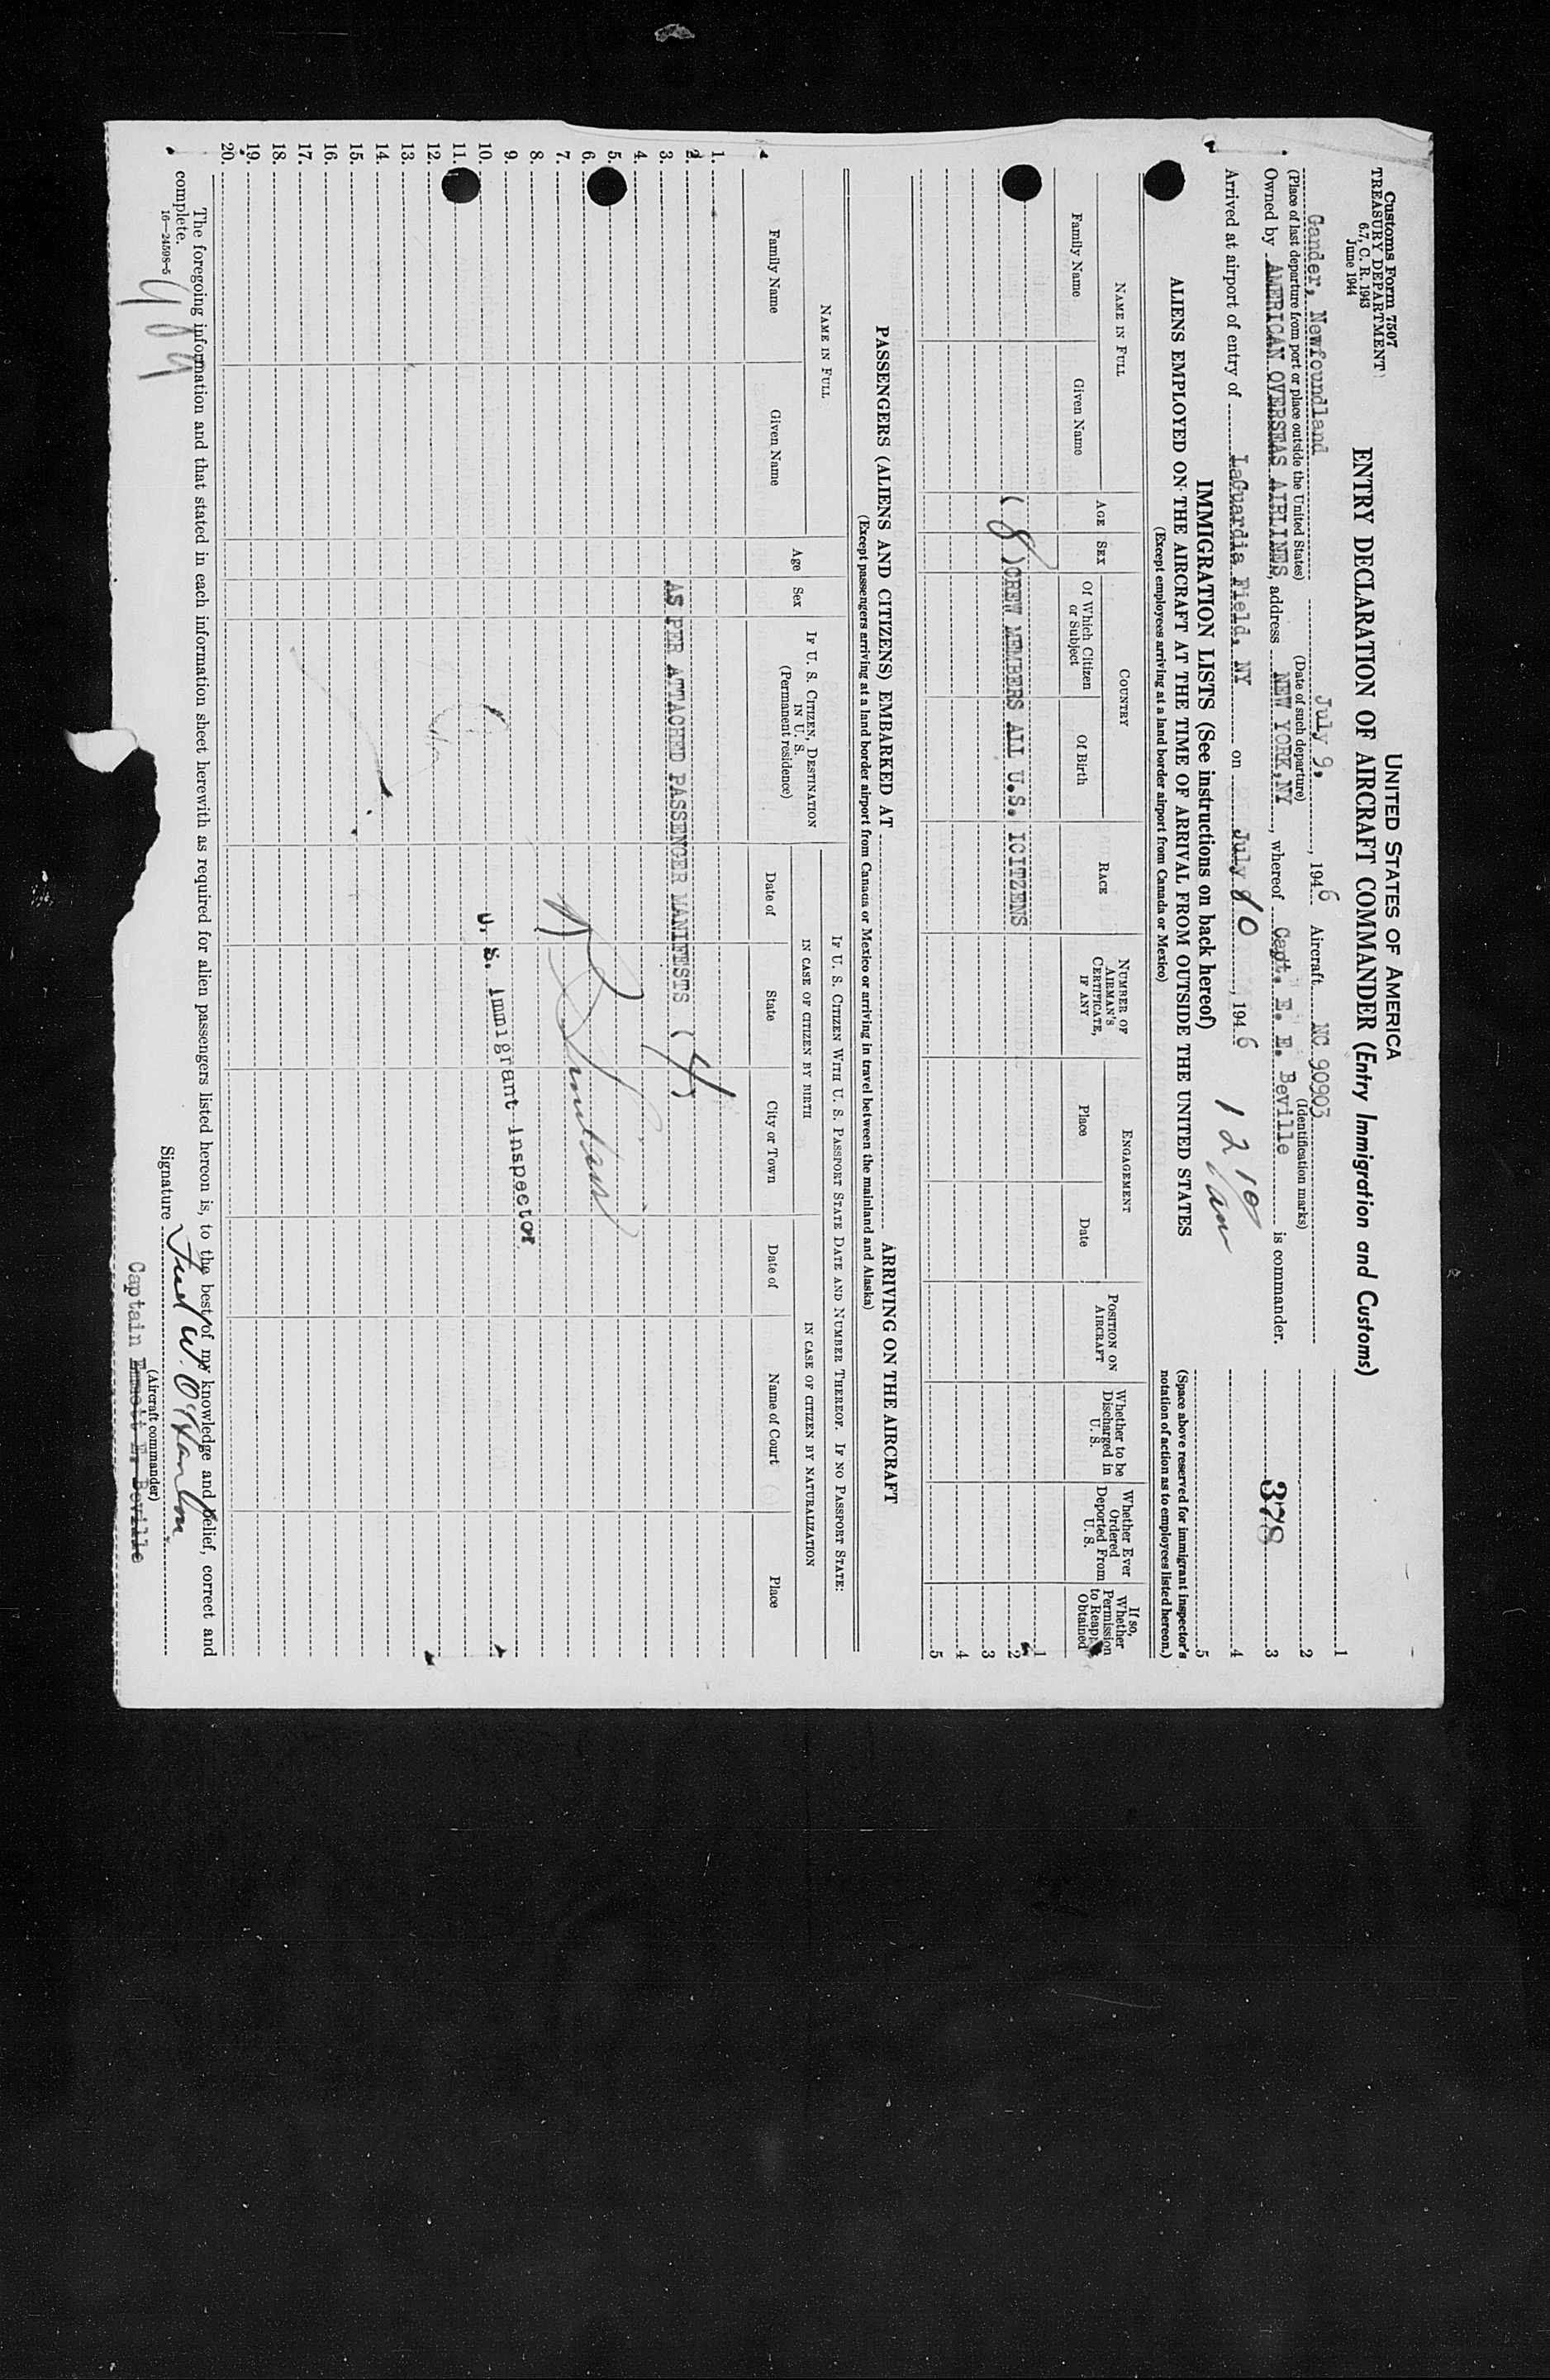 Customs Form 7507
TREASURY DEPARTMENT
6.7, C. R. 1943
June 1944
UNITED STATES OF AMERICA
ENTRY DECLARATION OF AIRCRAFT COMMANDER (Entry Immigration and Customs)
Gander, Newfoundland July 9, 1946 Aircraft NC 90903
(Place of last departure from port or place outside the United States) (Date of such departure) (Identification marks)
Owned by AMERICAN OVERSEAS AIRLINES, address NEW YORK,NY, whereof Capt. E. E. Beville is commander.
Arrived at airport of entry of LaGuardia Field, NY on July 10, 1946
1
2
3 378
4
5
(Space above reserved for immigrant inspector's notation of action as to employees listed hereon.)
IMMIGRATION LISTS (See instructions on back hereof)
ALIENS EMPLOYED ON THE AIRCRAFT AT THE TIME OF ARRIVAL FROM OUTSIDE THE UNITED STATES
(Except employees arriving at a land border airport from Canada or Mexico)
NAME IN FULL
Family Name Given Name
AGE SEX
COUNTRY
Of Which Citizen or Subject Of Birth
RACE
NUMBER OF AIRMAN'S CERTIFICATE, IF ANY
ENGAGEMENT
Place Date
POSITION ON AIRCRAFT
Whether to be Discharged in U. S.
Whether Ever Ordered Deported From U. S.
If so, Whether Permission to Reapply Obtained
1
(8)CREW MEMBERS ALL U.S. ICITZENS 2
3
4
5
PASSENGERS (ALIENS AND CITIZENS) EMBARKED AT ARRIVING ON THE AIRCRAFT
(Except passengers arriving at a land border airport from Canada or Mexico or arriving in travel between the mainland and Alaska)
NAME IN FULL
Family Name Given Name
Age Sex
IF U. S. CITIZEN, DESTINATION IN U. S.
(Permanent residence)
IF U. S. CITIZEN WITH U. S. PASSPORT STATE DATE AND NUMBER THEREOF. IF NO PASSPORT STATE:
IN CASE OF CITIZEN BY BIRTH IN CASE OF CITIZEN BY NATURALIZATION
Date of State City or Town Date of Name of Court Place
1.
2.
3. AS PER ATTACHED PASSENGER MANIFESTS (4)
4.
5.
6.
7.
8.
9. U. S. Immigrant Inspector
10.
11.
12.
13.
14.
15.
16.
17.
18.
19.
20.
The foregoing information and that stated in each information sheet herewith as required for alien passengers listed hereon is, to the best of my knowledge and belief, correct and
complete.
16—24598-5
Signature Fred W. O'Hanlon
(Aircraft commander)
Captain Emmett E. Beville